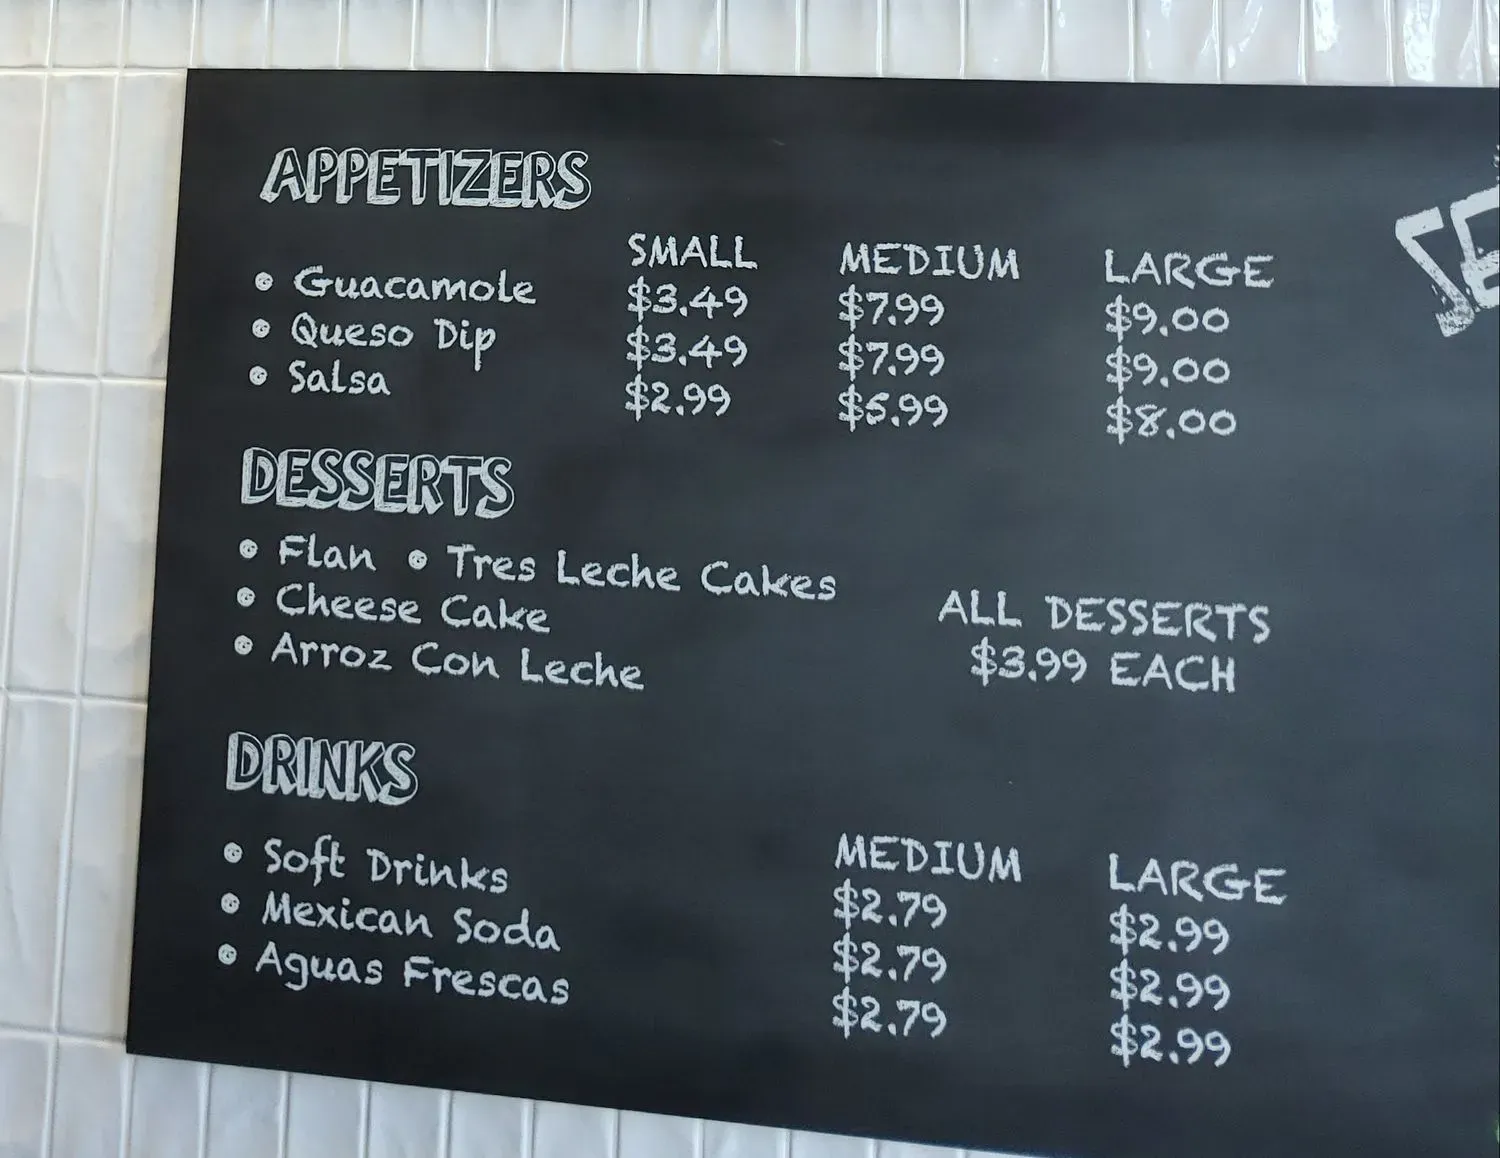 APPETIZERS
SMALL MEDIUM LARGE
• Guacamole $3.49 $7.99 $9.00
• Queso Dip $3.49 $7.99 $9.00
• Salsa $2.99 $5.99 $8.00
DESSERTS
• Flan • Tres Leche Cakes
• Cheese Cake
• Arroz Con Leche
ALL DESSERTS
$3.99 EACH
DRINKS
MEDIUM LARGE
• Soft Drinks $2.79 $2.99
• Mexican Soda $2.79 $2.99
• Aguas Frescas $2.79 $2.99